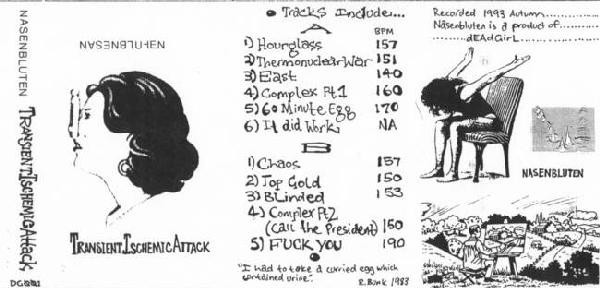 NASENBLUTEN TRANSIENT ISCHEMIC ATTACK
NASENBLUTEN
TRANSIENT ISCHEMIC ATTACK
Tracks Include...
A
BPM
1) Hourglass 157
2) Thermonuclear War 151
3) East 140
4) Complex Pt1 160
5) 60 Minute Egg 170
6) It did Work NA
B
1) Chaos 157
2) Top Gold 150
3) BLinded 153
4) Complex Pt2
(Call the President) 150
5) FUCK YOU 190
"I had to take a curried egg which
contained urine".
R. Bonk 1983
Recorded 1993 Autumn...............
Nasenbluten is a product of...........
........dEAdGirL...............
NASENBLUTEN